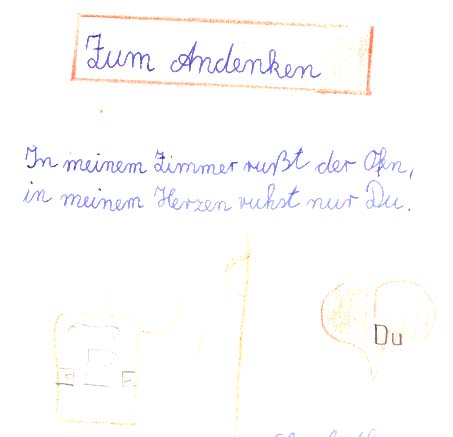 Zum Andenken
In meinem Zimmer rußt der Ofen,
in meinem Herzen ruhst nur Du.
Du